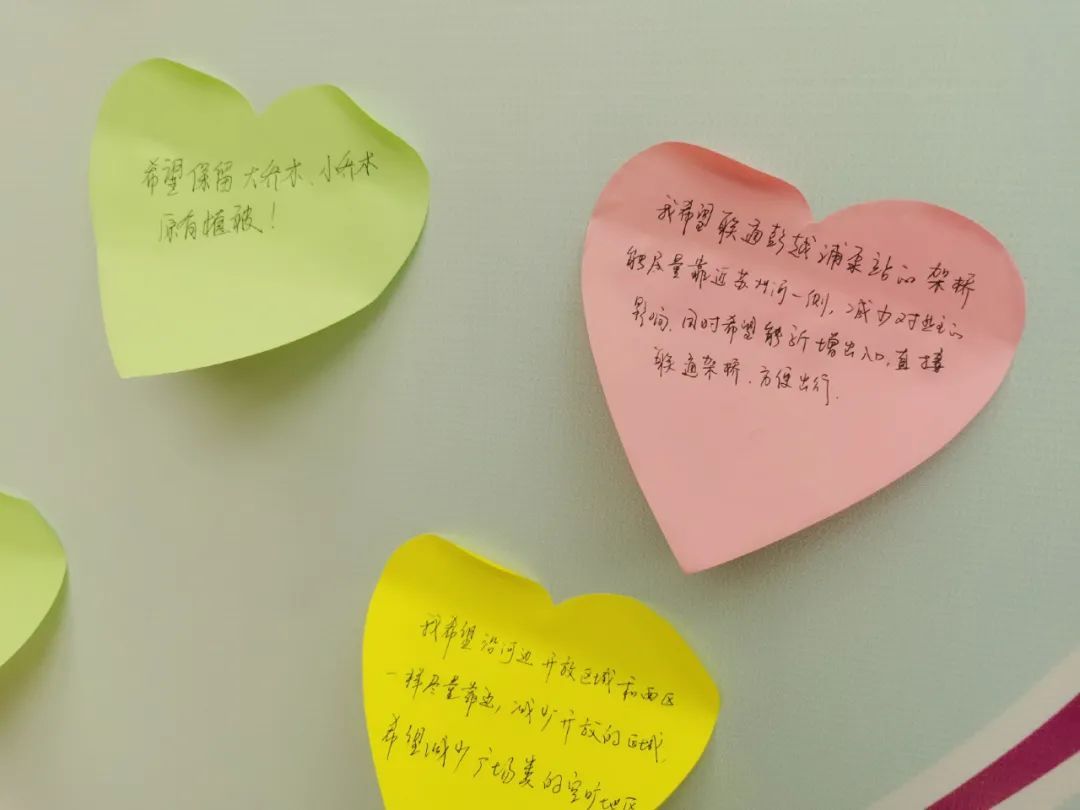 希望保留大乔木、小乔木
原有植被！
我希望联通彭越浦泵站的架桥
能尽量靠近苏州河一侧，减少对业主的
影响.同时希望能新增出入口,直接
联通架桥.方便出行.
我希望沿河边开放区域和西区
一样尽量靠边，减少开放的区域,
希望减少广场类的空旷地区